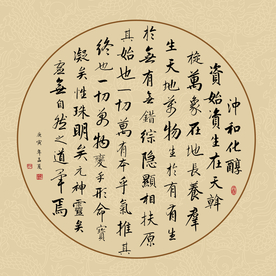 沖和化醇
資始資生在天斡
旋萬象在地長養群
生天地萬物生於有有生
於無有無錯綜隱顯相扶原
其始也一切萬有本乎氣推其
終也一切萬物變乎形命寶
凝矣性珠明矣元神靈矣
虛無自然之道畢焉
庚寅年